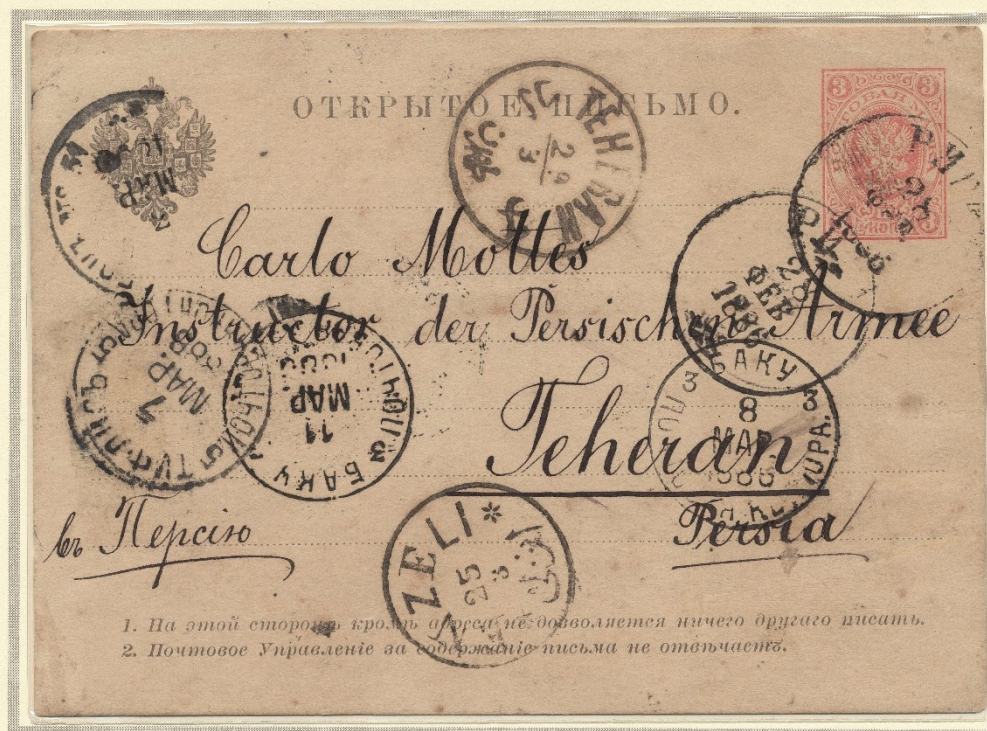 ОТКРЫТОЕ ПИСЬМО.
3 3
РИГА
28
ФЕВ
1886
ТЕНЕRAN
29
3
Carlo Mottes
Instructor der Persischen Armee
Teheran
Persia
въ Персію
12
МАР.
ТИФЛИСЪ
7
МАР
БАКУ
11
МАР
1886
БАКУ
8
МАР
1886
ENZELI
25
3
1. На этой сторонѣ кромѣ адреса не дозволяется ничего другаго писать.
2. Почтовое Управленіе за содержаніе письма не отвѣчаетъ.